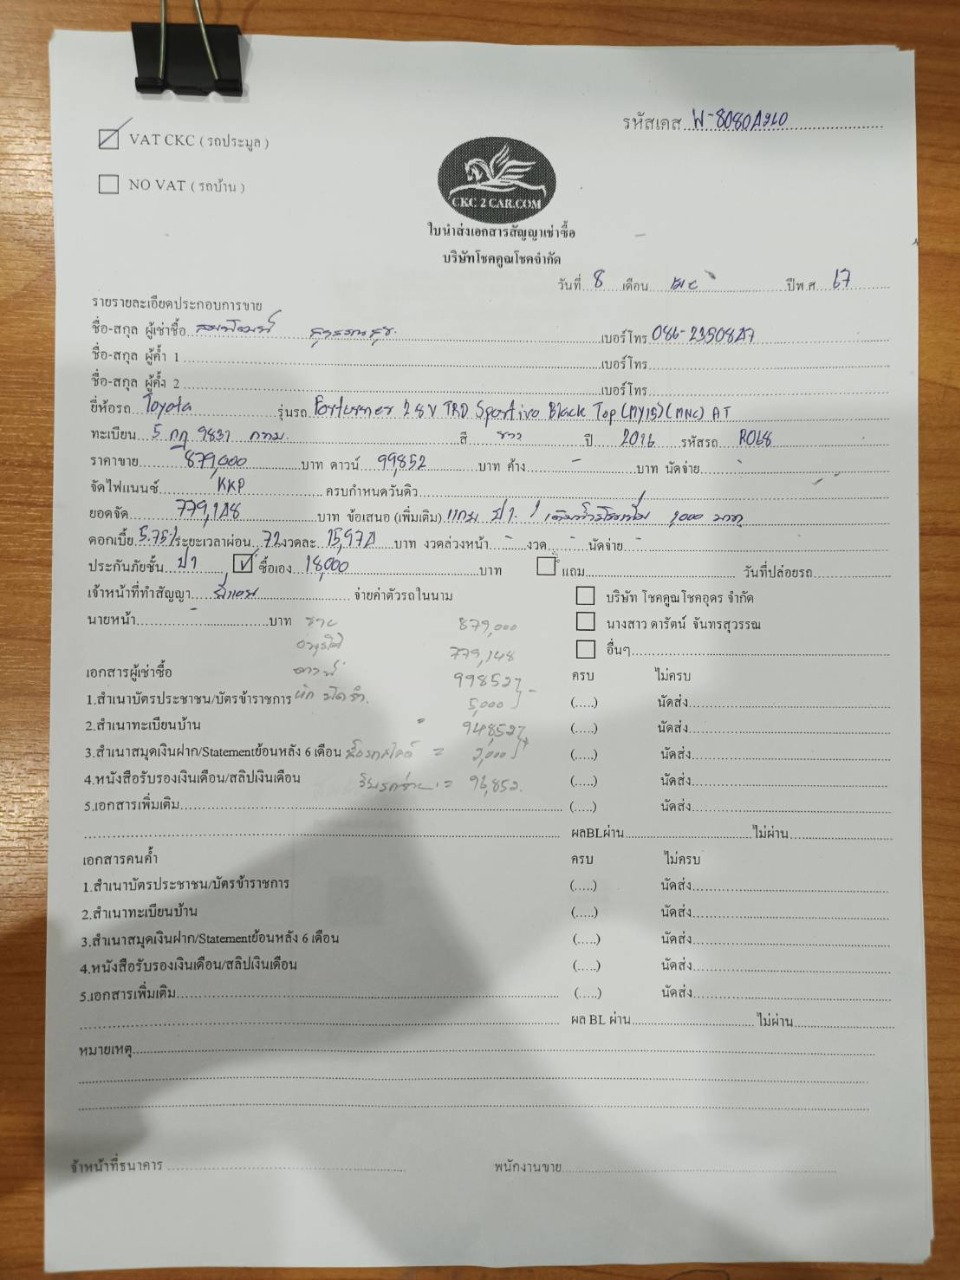 รหัสเคส W-8080A910
VAT CKC ( รถประมูล )
NO VAT ( รถบ้าน )
CKC 2 CAR.COM
ใบนำส่งเอกสารสัญญาเช่าซื้อ
บริษัทโชคคูณโชคจำกัด
วันที่ 8 เดือน ปีพ.ศ. 67
รายรายละเอียดประกอบการขาย
ชื่อ-สกุล ผู้เช่าซื้อ เบอร์โทร
ชื่อ-สกุล ผู้ค้ำ 1 เบอร์โทร
ชื่อ-สกุล ผู้ค้ำ 2 เบอร์โทร
ยี่ห้อรถ Toyota รุ่นรถ Fortuner 2.8 V TRD Sportivo Black Top (MY15) (MNC) AT
ทะเบียน 5 กฎ 9837 กทม. สี ขาว ปี 2016 รหัสรถ R068
ราคาขาย 879,000 บาท ดาวน์ 99,852 บาท ค้าง - บาท นัดจ่าย -
จัดไฟแนนซ์ KKP ครบกำหนดวันดิว
ยอดจัด 779,148 บาท ข้อเสนอ (เพิ่มเติม) แถม ป1. 2,000 บาท
ดอกเบี้ย 5.75% ระยะเวลาผ่อน 72 งวดละ 15,974 บาท งวดล่วงหน้า - งวด - นัดจ่าย -
ประกันภัยชั้น ป1 ซื้อเอง 18,000 บาท แถม วันที่ปล่อยรถ
เจ้าหน้าที่ทำสัญญา จ่ายค่าตัวรถในนาม บริษัท โชคคูณโชคอุดร จำกัด
นายหน้า - บาท นางสาว ดารัตน์ จันทรสุวรรณ
อื่นๆ
ขาย 879,000
779,148
ดาวน์ 99852
5,000
94852
2,000
= 96,852
เอกสารผู้เช่าซื้อ ครบ ไม่ครบ
1.สำเนาบัตรประชาชน/บัตรข้าราชการ (.....) นัดส่ง
2.สำเนาทะเบียนบ้าน (.....) นัดส่ง
3.สำเนาสมุดเงินฝาก/Statementย้อนหลัง 6 เดือน (.....) นัดส่ง
4.หนังสือรับรองเงินเดือน/สลิปเงินเดือน (.....) นัดส่ง
5.เอกสารเพิ่มเติม (.....) นัดส่ง
ผลBLผ่าน ไม่ผ่าน
เอกสารคนค้ำ ครบ ไม่ครบ
1.สำเนาบัตรประชาชน/บัตรข้าราชการ (.....) นัดส่ง
2.สำเนาทะเบียนบ้าน (.....) นัดส่ง
3.สำเนาสมุดเงินฝาก/Statementย้อนหลัง 6 เดือน (.....) นัดส่ง
4.หนังสือรับรองเงินเดือน/สลิปเงินเดือน (.....) นัดส่ง
5.เอกสารเพิ่มเติม (.....) นัดส่ง
ผล BL ผ่าน ไม่ผ่าน
หมายเหตุ
เจ้าหน้าที่ธนาคาร พนักงานขาย